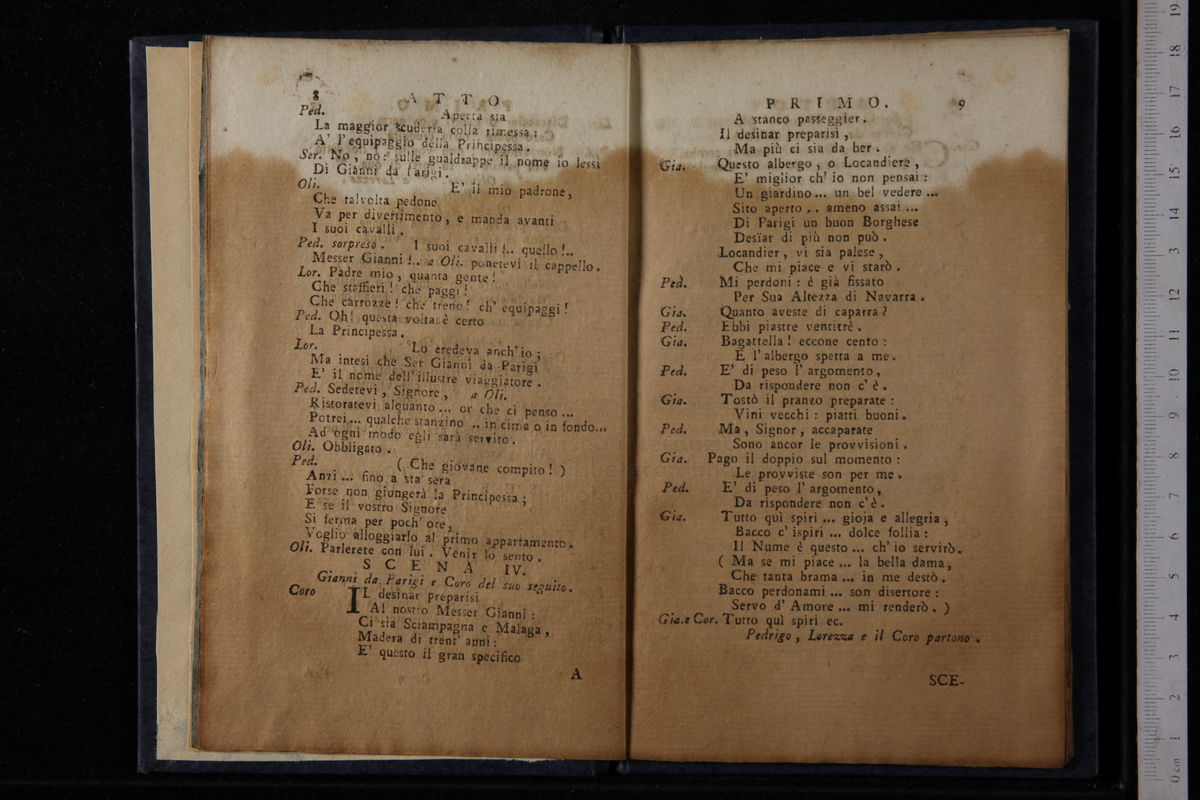 8 ATTO
Ped. Aperta sia
La maggior scuderia colla rimessa:
A' l'equipaggio della Principessa.
Ser. No, no: sulle gualdrappe il nome io lessi
Di Gianni da Parigi.
Oli. E' il mio padrone,
Che talvolta pedone
Va per divertimento, e manda avanti
I suoi cavalli.
Ped. sorpreso. I suoi cavalli!.. quello!..
Messer Gianni!.. a Oli. ponetevi il cappello.
Lor. Padre mio, quanta gente!
Che staffieri! che paggi!
Che carrozze! che treno! ch' equipaggi!
Ped. Oh! questa volta è certo
La Principessa.
Lor. Lo credeva anch'io;
Ma intesi che Ser Gianni da Parigi
E' il nome dell'illustre viaggiatore.
Ped. Sedetevi, Signore, a Oli.
Ristoratevi alquanto... or che ci penso...
Potrei... qualche stanzino .. in cima o in fondo...
Ad ogni modo egli sarà servito.
Oli. Obbligato.
Ped. (Che giovane compito!)
Anzi... fino a sta sera
Forse non giungerà la Principessa;
E se il vostro Signore
Si ferma per poch' ore,
Voglio alloggiarlo al primo appartamento.
Oli. Parlerete con lui. Venir lo sento.
SCENA IV.
Gianni da Parigi e Coro del suo seguito.
Coro IL desinar preparisi
Al nostro Messer Gianni:
Ci sia Sciampagna e Malaga,
Madera di trent' anni:
E' questo il gran specifico
A
PRIMO. 9
A stanco passeggier.
Il desinar preparisi,
Ma più ci sia da ber.
Gia. Questo albergo, o Locandiere,
E' miglior ch' io non pensai:
Un giardino... un bel vedere...
Sito aperto... ameno assai...
Di Parigi un buon Borghese
Desiar di più non può.
Locandier, vi sia palese,
Che mi piace e vi starò.
Ped. Mi perdoni: è già fissato
Per Sua Altezza di Navarra.
Gia. Quanto aveste di caparra?
Ped. Ebbi piastre ventitrè.
Gia. Bagattella! eccone cento:
E l'albergo spetta a me.
Ped. E' di peso l'argomento,
Da rispondere non c'è.
Gia. Tosto il pranzo preparate:
Vini vecchi: piatti buoni.
Ped. Ma, Signor, accaparate
Sono ancor le provvisioni.
Gia. Pago il doppio sul momento:
Le provviste son per me.
Ped. E' di peso l'argomento,
Da rispondere non c'è.
Gia. Tutto quì spiri... gioja e allegria,
Bacco c'ispiri... dolce follia:
Il Nume è questo... ch'io servirò.
(Ma se mi piace... la bella dama,
Che tanta brama... in me destò.
Bacco perdonami... son disertore:
Servo d'Amore... mi renderò.)
Gia. e Cor. Tutto quì spiri ec.
Pedrigo, Lorezza e il Coro partono.
SCE-
0 cm 1 2 3 4 5 6 7 8 9 10 11 12 13 14 15 16 17 18 19